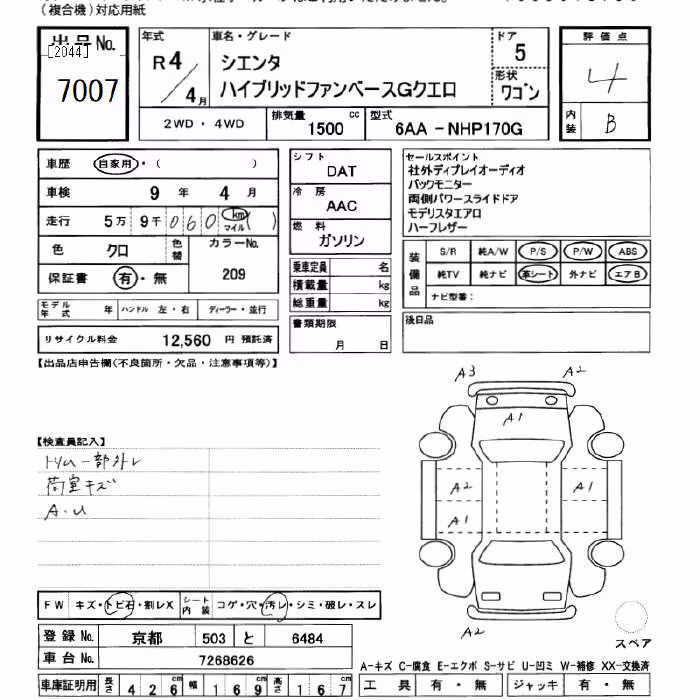 (複合機)対応用紙
出品No.
[2044]
7007
年式
R4/4月
車名・グレード
シエンタ
ハイブリッドファンベースGクエロ
ドア
5
形状
ワゴン
評価点
4
内装
B
2WD・4WD
排気量
1500 cc
型式
6AA -NHP170G
車歴 自家用・( )
車検 9年 4月
走行 5万 9千 060 km マイル ( )
色 クロ 色替 カラーNo.
209
保証書 有・無
モデル年式 年 ハンドル 左・右 ディーラー・並行
リサイクル料金 12,560 円 預託済
シフト
DAT
冷房
AAC
燃料
ガソリン
乗車定員 名
積載量 kg
総重量 kg
書類期限
月 日
セールスポイント
社外ディプレイオーディオ
バックモニター
両側パワースライドドア
モデリスタエアロ
ハーフレザー
装備品
S/R 純A/W P/S P/W ABS
純TV 純ナビ 革シート 外ナビ エアB
ナビ型番:
後日品
【出品店申告欄(不良箇所・欠品・注意事項等)】
【検査員記入】
トリム一部外レ
荷室キズ
A・U
A3
A2
A1
A2
A1
A1
A2
スペア
FW キズ・トビ石・割レX シート内装 コゲ・穴・汚レ・シミ・破レ・スレ
登録No. 京都 503 と 6484
車台No. 7268626
車庫証明用 長さ 426cm 幅 169cm 高さ 167cm
A-キズ C-腐食 E-エクボ S-サビ U-凹ミ W-補修 XX-交換済
工具 有・無 ジャッキ 有・無